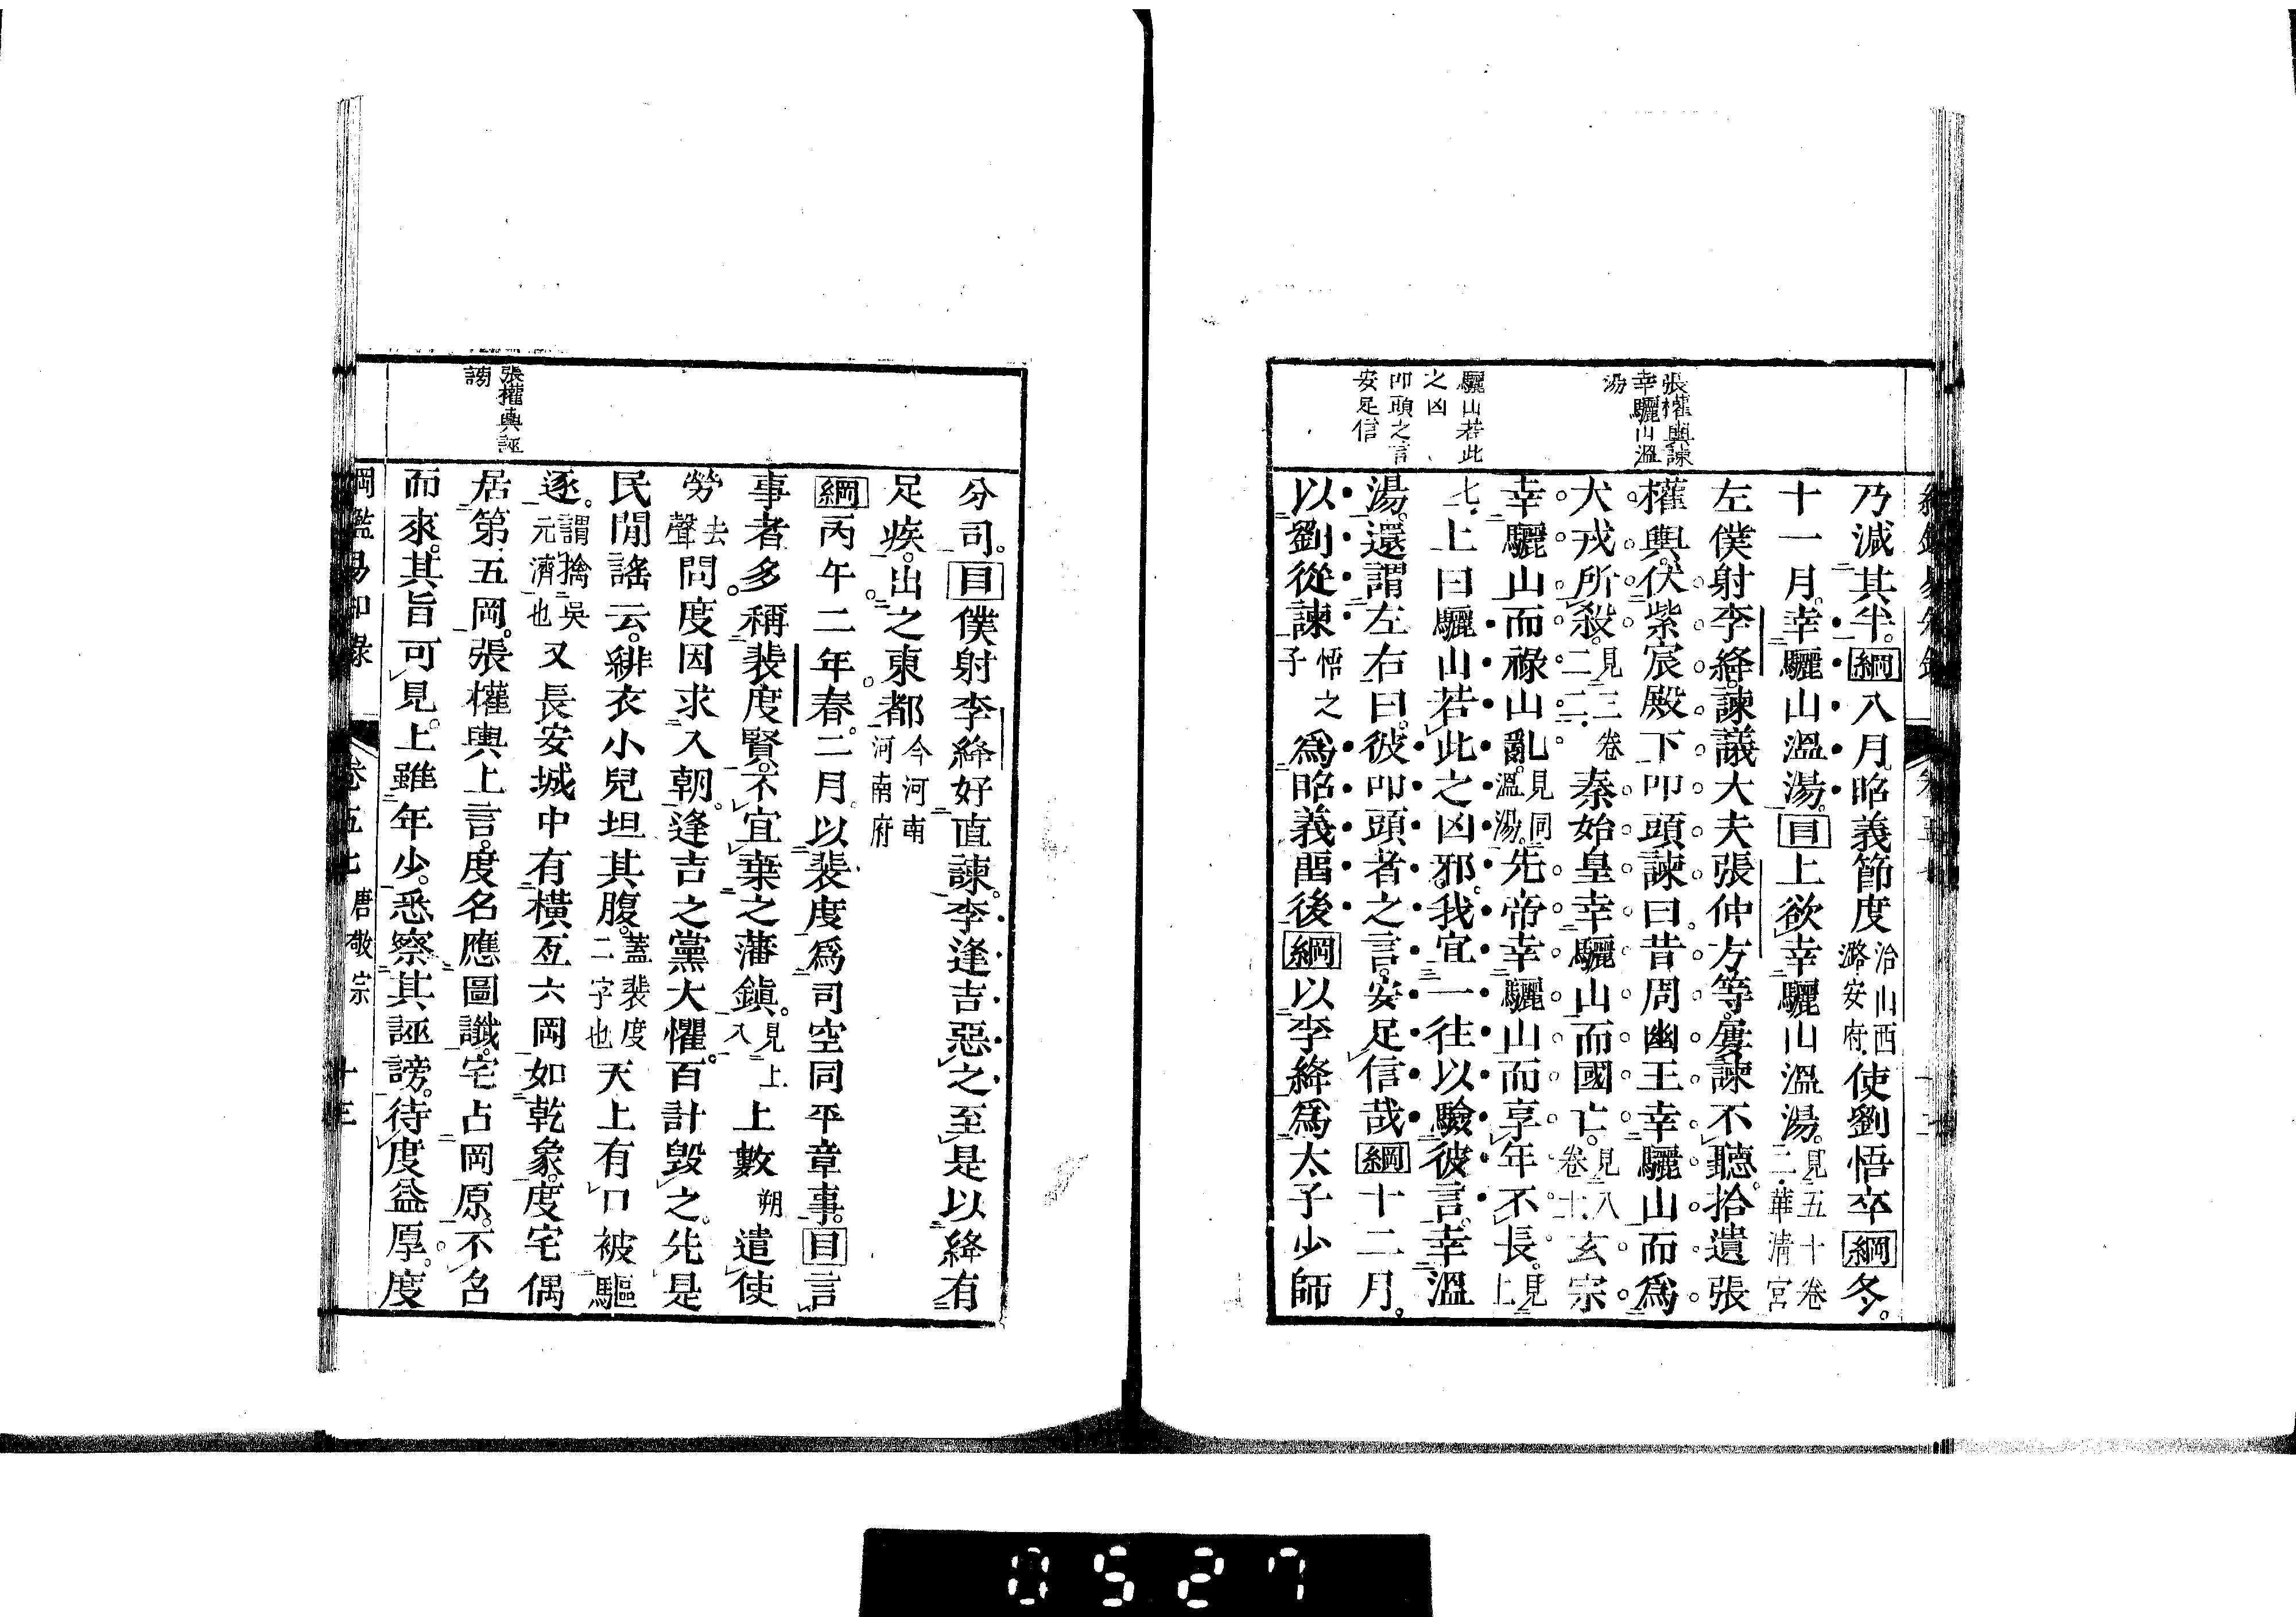 張權輿諫
幸驪山溫
湯
驪山若此
之凶
叩頭之言
安足信
乃減其半。綱八月。昭義節度治山西潞安府使劉悟卒綱冬。
十一月。幸驪山溫湯。目上欲幸驪山溫湯。見五十卷二華淸宮
左僕射李絳。諫議大夫張仲方等。屢諫不聽。拾遺張
權輿。伏紫宸殿下叩頭諫曰昔周幽王幸驪山而爲
犬戎所殺。見三卷二二秦始皇幸驪山而國亡。見八卷十玄宗
幸驪山而祿山亂。見同溫湯。先帝幸驪山而享年不長。見上
七上曰驪山若此之凶邪。我宜一往以驗彼言。幸溫
湯。還謂左右曰。彼叩頭者之言。安足信哉綱十二月。
以劉從諫悟之子爲昭義畱後綱以李絳爲太子少師
張權輿誣
謗
分司。目僕射李絳好直諫。李逢吉惡之至是以絳有
足疾。出之東都今河南河南府
綱丙午二年春。二月以裴度爲司空同平章事。目言
事者多。稱裴度賢。不宜棄之藩鎭。見上八上數朔遣使
勞去聲問度因求入朝。逢吉之黨大懼。百計毀之。先是
民閒謠云。緋衣小兒坦其腹。蓋裴度二字也天上有口被驅
逐。謂擒吳元濟也又長安城中有橫亙六岡如乾象。度宅偶
居第五岡。張權輿上言。度名應圖讖。宅占岡原。不召
而來。其旨可見。上雖年少。悉察其誣謗。待度益厚。度
綱鑑易知錄 卷五七 唐敬宗 十三
0527